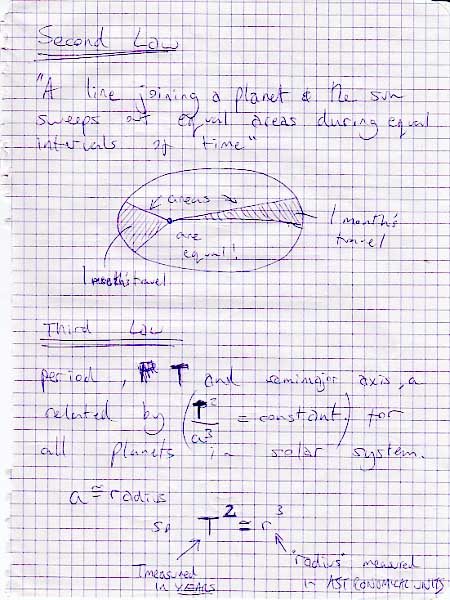 Second Law
"A line joining a planet & the sun
sweeps out equal areas during equal
intervals of time"
areas
are
equal!
1 month's
travel
1 month's travel
Third Law
period, T and semimajor axis, a
related by (T²/a³ = constant) for
all planets in a solar system.
a ≅ radius
so T² ≅ r³
T measured
in YEARS
"radius" measured
in ASTRONOMICAL UNITS